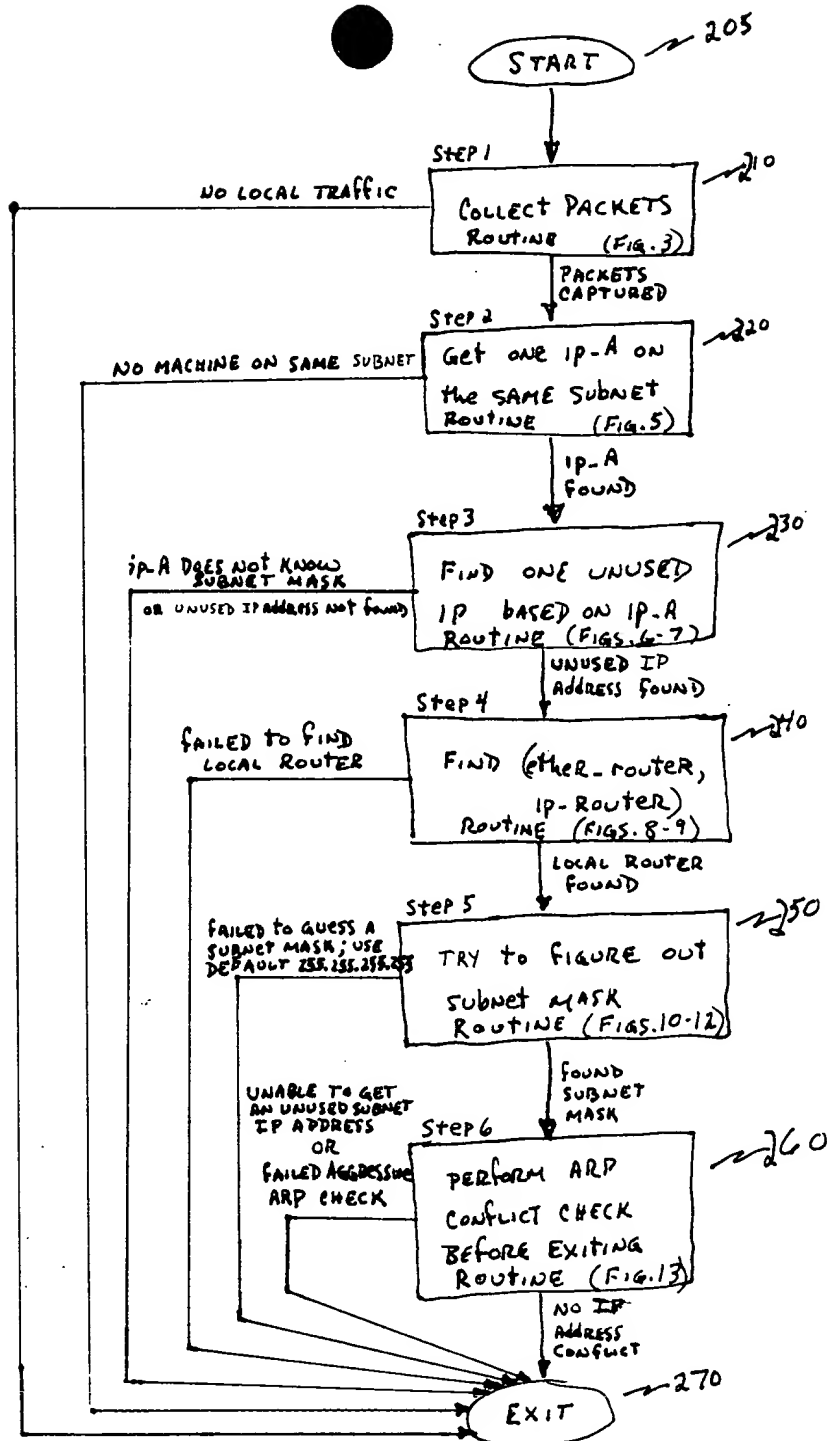 205
START
Step 1
210
NO LOCAL TRAFFIC
COLLECT PACKETS
ROUTINE (FIG. 3)
PACKETS
CAPTURED
Step 2
220
NO MACHINE ON SAME SUBNET
Get one ip-A on
the SAME SUBNET
ROUTINE (FIG. 5)
ip-A
FOUND
Step 3
230
ip-A DOES NOT KNOW
SUBNET MASK
OR UNUSED IP ADDRESS NOT FOUND
FIND ONE UNUSED
IP BASED ON IP-A
ROUTINE (FIGS. 6-7)
UNUSED IP
ADDRESS FOUND
Step 4
240
FAILED TO FIND
LOCAL ROUTER
FIND (ether-router,
IP-ROUTER)
ROUTINE (FIGS. 8-9)
LOCAL ROUTER
FOUND
Step 5
250
FAILED TO GUESS A
SUBNET MASK; USE
DEFAULT 255.255.255.255
TRY to FIGURE OUT
SUBNET MASK
ROUTINE (FIGS. 10-12)
FOUND
SUBNET
MASK
UNABLE TO GET
AN UNUSED SUBNET
IP ADDRESS
OR
FAILED AGGRESSIVE
ARP CHECK
Step 6
260
PERFORM ARP
CONFLICT CHECK
BEFORE EXITING
ROUTINE (FIG. 13)
NO IP
ADDRESS
CONFLICT
270
EXIT